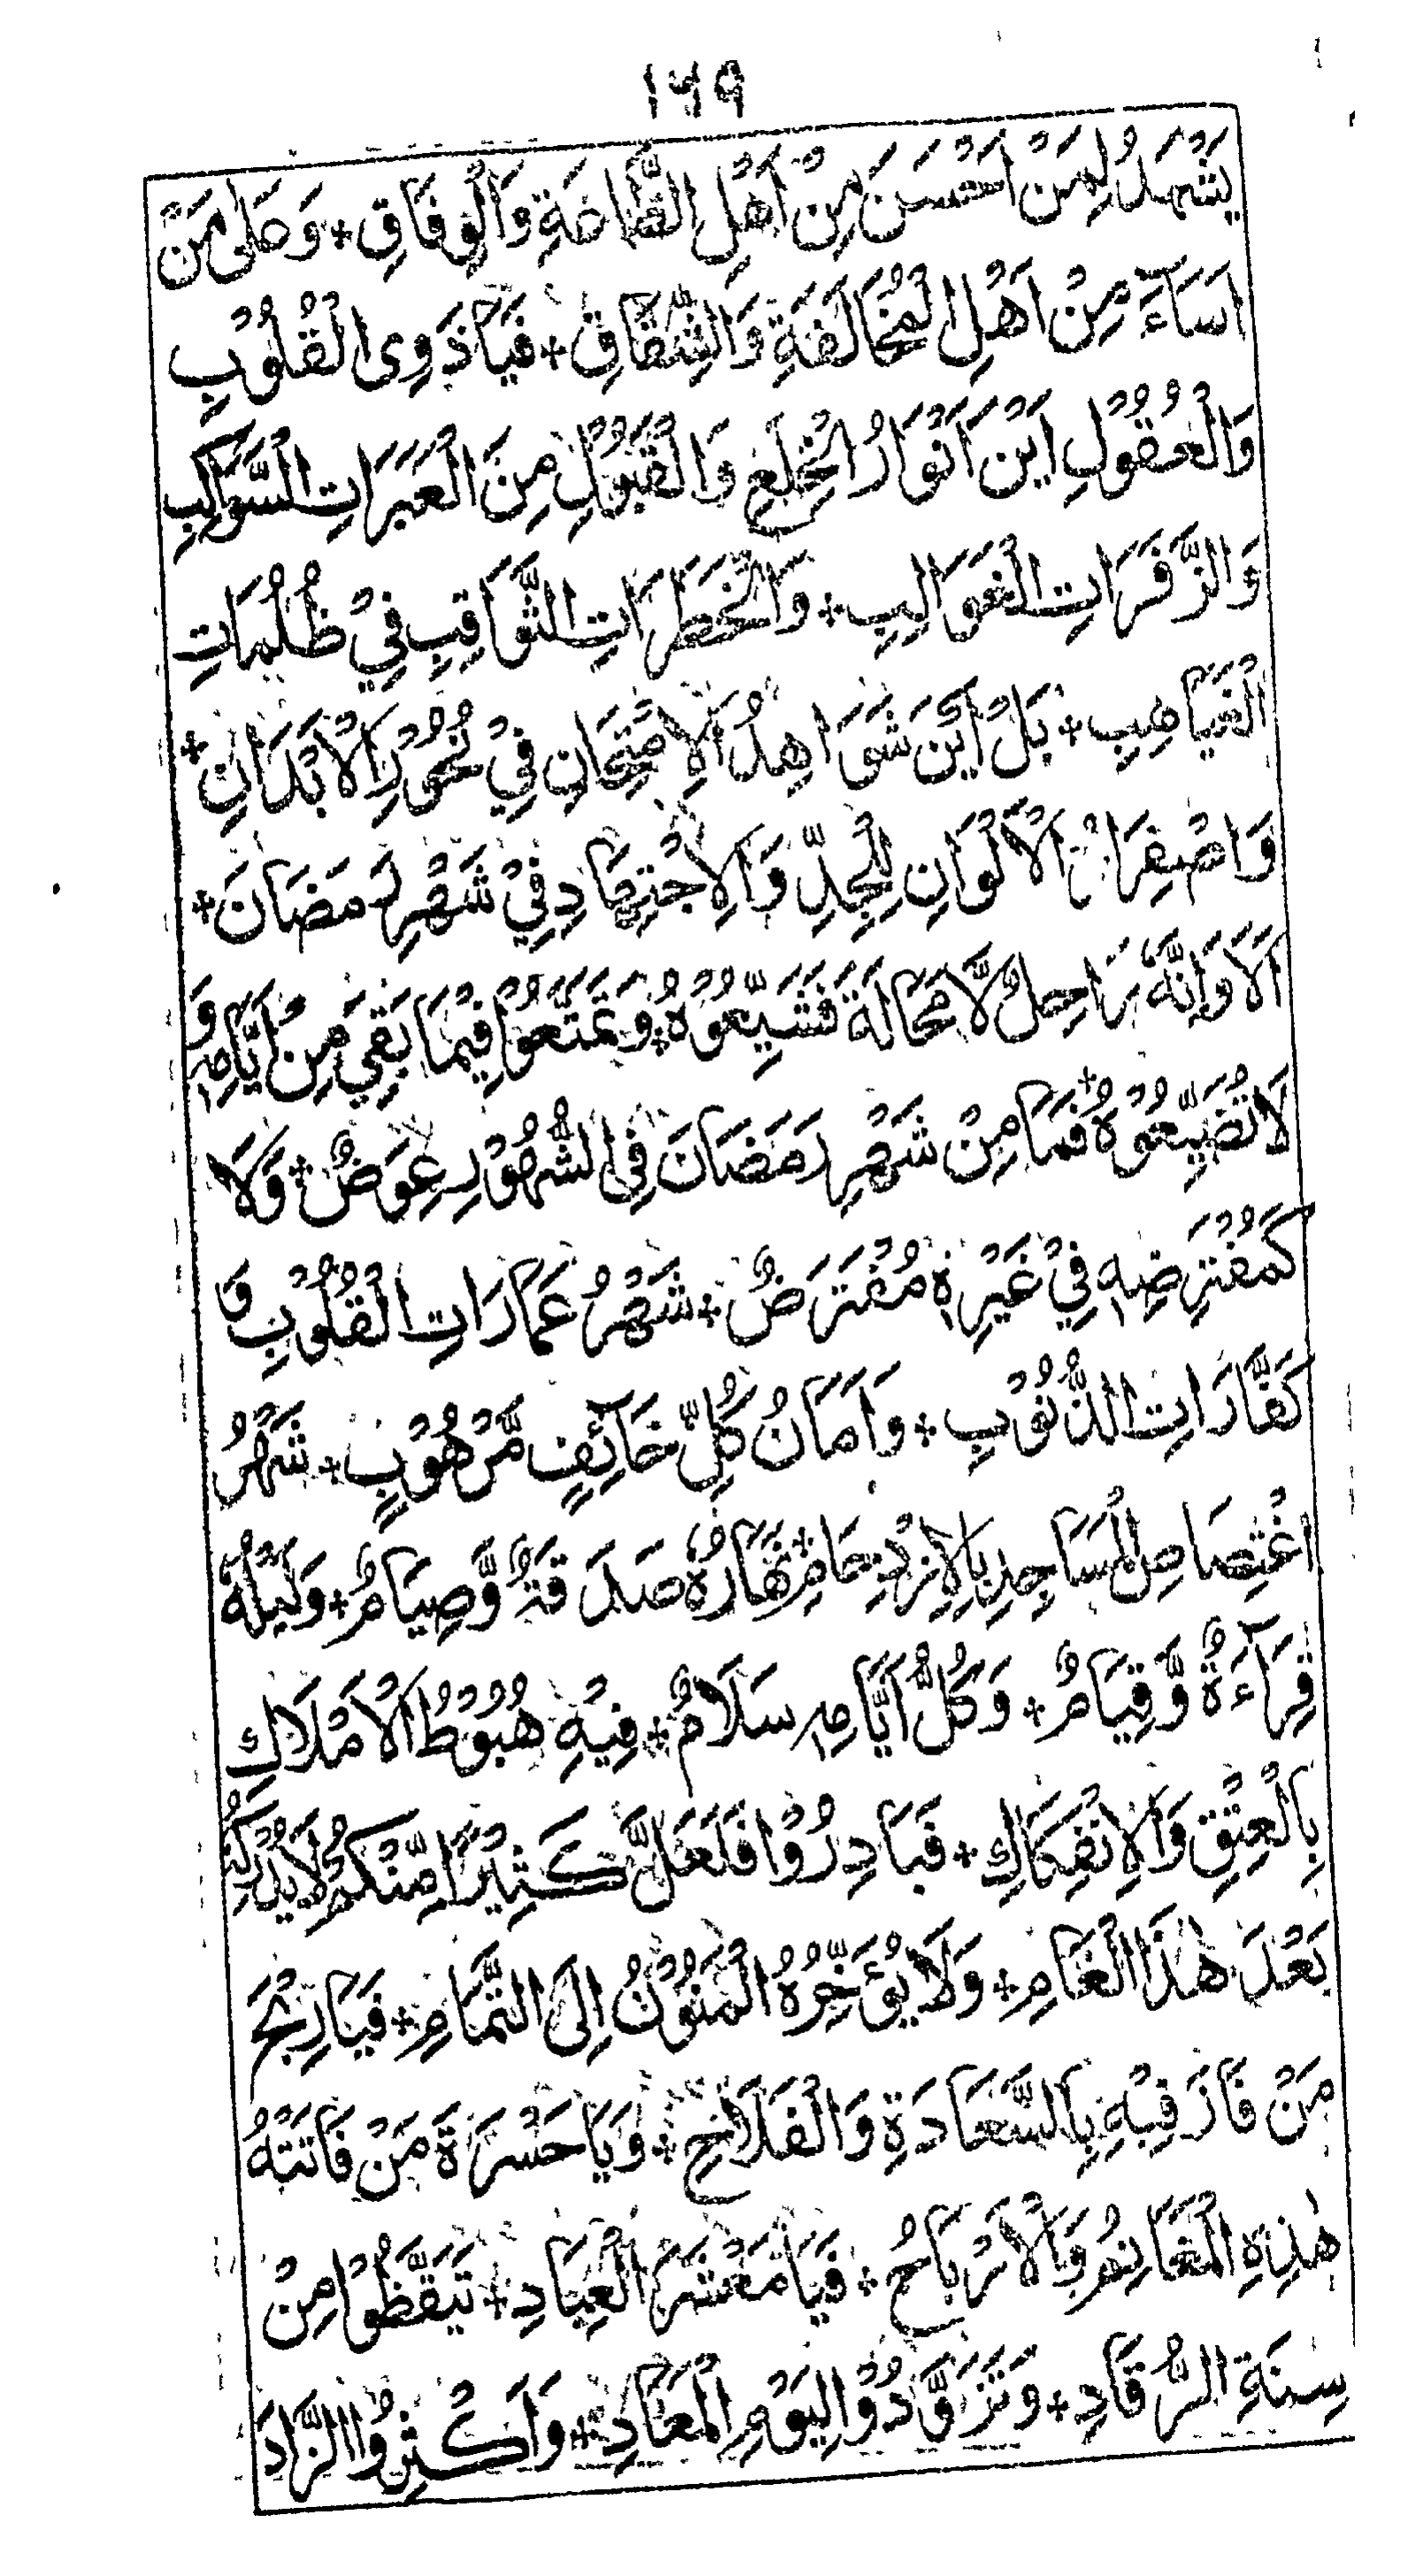 ۱۶۹
يَشْهَدُ لِمَنْ اَحْسَنَ مِنْ اَهْلِ الطَّاعَةِ وَالْوِفَاقِ + وَعَلٰى مَنْ
اَسَآءَ مِنْ اَهْلِ الْمُخَالَفَةِ وَالشِّقَاقِ + فَيَا ذَوِى الْقُلُوْبِ
وَالْعُقُوْلِ اَيْنَ اَنْوَارُ الْخِلَعِ وَالْقَبُوْلِ مِنَ الْعَبَرَاتِ السَّوَاكِبِ
وَالزَّفَرَاتِ الْغَوَالِبِ + وَالْخَطَرَاتِ الثَّوَاقِبِ فِيْ ظُلُمَاتِ
الْغَيَاهِبِ + بَلْ اَيْنَ شَوَاهِدُ الْاِمْتِحَانِ فِيْ نُحُوْرِ الْاَبْدَانِ +
وَاصْفِرَارُ الْاَلْوَانِ لِلْجِدِّ وَالْاِجْتِهَادِ فِيْ شَهْرِ رَمَضَانَ +
اَلَا وَاِنَّهٗ رَاحِلٌ لَّا مَحَالَةَ فَشَيِّعُوْهُ + وَتَمَتَّعُوْا فِيْمَا بَقِيَ مِنْ اَيَّامِهٖ وَ
لَا تُضَيِّعُوْهُ + فَمَا مِنْ شَهْرِ رَمَضَانَ فِى الشُّهُوْرِ عِوَضٌ + وَلَا
كَمُفْتَرَضِهٖ فِيْ غَيْرِهٖ مُفْتَرَضٌ + شَهْرُ عَمَارَاتِ الْقُلُوْبِ وَ
كَفَّارَاتِ الذُّنُوْبِ + وَاَمَانُ كُلِّ خَآئِفٍ مَّرْهُوْبٍ + شَهْرُ
اغْتِصَاصِ الْمَسَاجِدِ بِالْاِزْدِحَامِ + نَهَارُهٗ صَدَقَةٌ وَّصِيَامٌ + وَلَيْلُهٗ
قِرَآءَةٌ وَّقِيَامٌ + وَكُلُّ اَيَّامِهٖ سَلَامٌ + فِيْهِ هُبُوْطُ الْاَمْلَاكِ
بِالْعِتْقِ وَالْاِنْفِكَاكِ + فَبَادِرُوْا فَلَعَلَّ كَثِيْرًا مِّنْكُمْ لَا يُدْرِكُهٗ
بَعْدَ هٰذَا الْعَامِ + وَلَا يُؤَخِّرُهُ الْمَنُوْنُ اِلَى التَّمَامِ + فَيَا رِبْحَ
مَنْ فَازَ فِيْهِ بِالسَّعَادَةِ وَالْفَلَاحِ + وَيَا حَسْرَةَ مَنْ فَاتَتْهُ
هٰذِهِ الْمَغَانِمُ وَالْاَرْبَاحُ + فَيَا مَعْشَرَ الْعِبَادِ + تَيَقَّظُوْا مِنْ
سِنَةِ الرُّقَادِ + وَتَزَوَّدُوْا لِيَوْمِ الْمَعَادِ + وَاَكْثِرُوا الزَّادَ